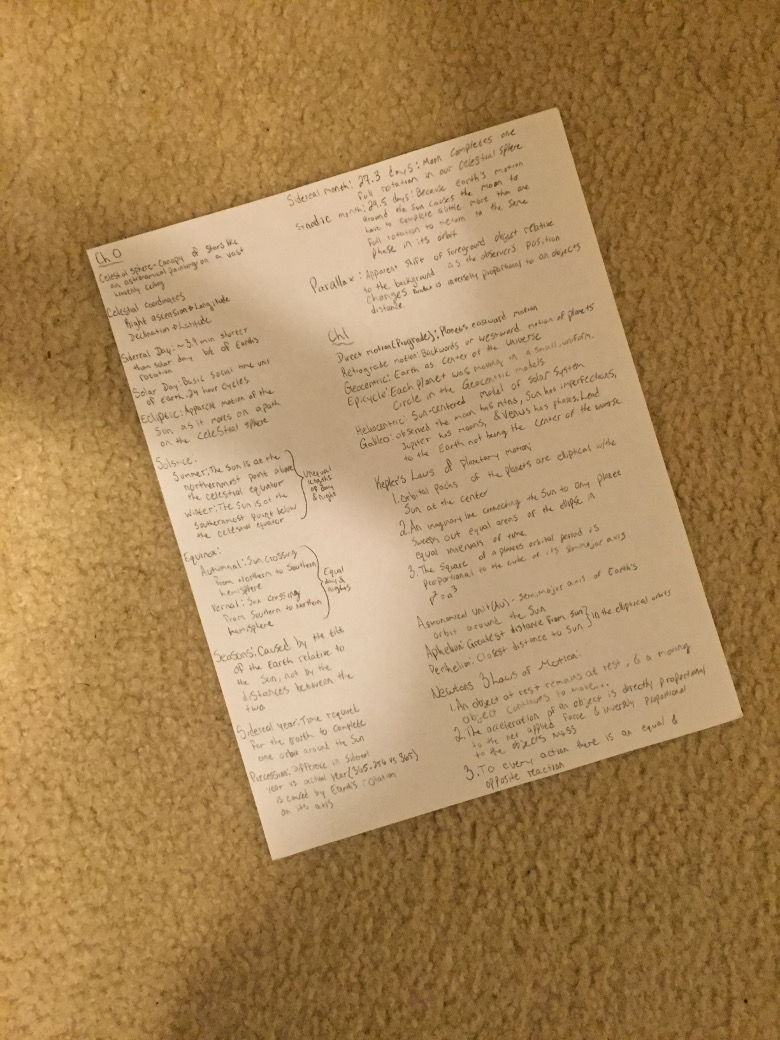 Ch 0
Celestial Sphere: Canopy of stars like
an astronomical painting on a vast
heavenly ceiling
Celestial coordinates
Right ascension + Longitude
Declination + Latitude
Sidereal Day: ~3.9 min shorter
than solar day b/c of Earths
rotation
Solar Day: Basic social time unit
of earth, 24 hour cycles
Ecliptic: Apparent motion of the
Sun as it moves on a path
on the celestial sphere
Solstice:
Summer: The sun is at the
northernmost point above
the celestial equator
Winter: The Sun is at the
Southernmost point below
the celestial equator
Unequal
lengths
of day
& night
Equinox:
Autumnal: Sun crossing
from Northern to Southern
hemisphere
Vernal: Sun crossing
From Southern to Northern
hemisphere
Equal
day &
nights
Seasons: Caused by the tilt
of the Earth relative to
the Sun, not by the
distances between the
two
Sidereal year: Time required
for the earth to complete
one orbit around the Sun
Precession: Difference in Sidereal
year vs actual year (365.256 vs 365)
is caused by Earth's rotation
on its axis
Sidereal month: 27.3 days: Moon completes one
full rotation in our Celestial Sphere
synodic month: 29.5 days: Because Earth's motion
around the Sun causes the moon to
have to complete a little more than one
full rotation to return to the same
phase in its orbit
Parallax: Apparent shift of foreground object relative
to the background as the observer's position
changes is inversely proportional to an objects
distance
Ch 1
Direct motion (Prograde): Planets eastward motion
Retrograde motion: Backwards or westward motion of planets
Geocentric: Earth as center of the Universe
Epicycle: Each planet was moving in a small, uniform,
circle in the Geocentric models
Heliocentric: Sun-centered model of Solar System
Galileo: observed the moon has mtns, Sun has imperfections,
Jupiter has moons, & Venus has phases. Lead
to the Earth not being the center of the universe
Kepler's Laws of planetary motion:
1. Orbital paths of the planets are eliptical w/the
Sun at the center
2. An imaginary line connecting the Sun to any planet
Sweeps out equal areas of the ellipse in
equal intervals of time
3. The square of a planets orbital period is
proportional to the cube of its semimajor axis
P² = a³
Astronomical Unit (AU) - semimajor axis of Earth's
orbit around the Sun
Aphelion: Greatest distance from Sun
Perihelion: Closest distance to Sun
in the elliptical orbits
Newtons 3 Laws of Motion:
1. An object at rest remains at rest, & a moving
object continues to move...
2. The acceleration of an object is directly proportional
to the net applied force & inversly proportional
to the objects mass
3. To every action there is an equal &
opposite reaction